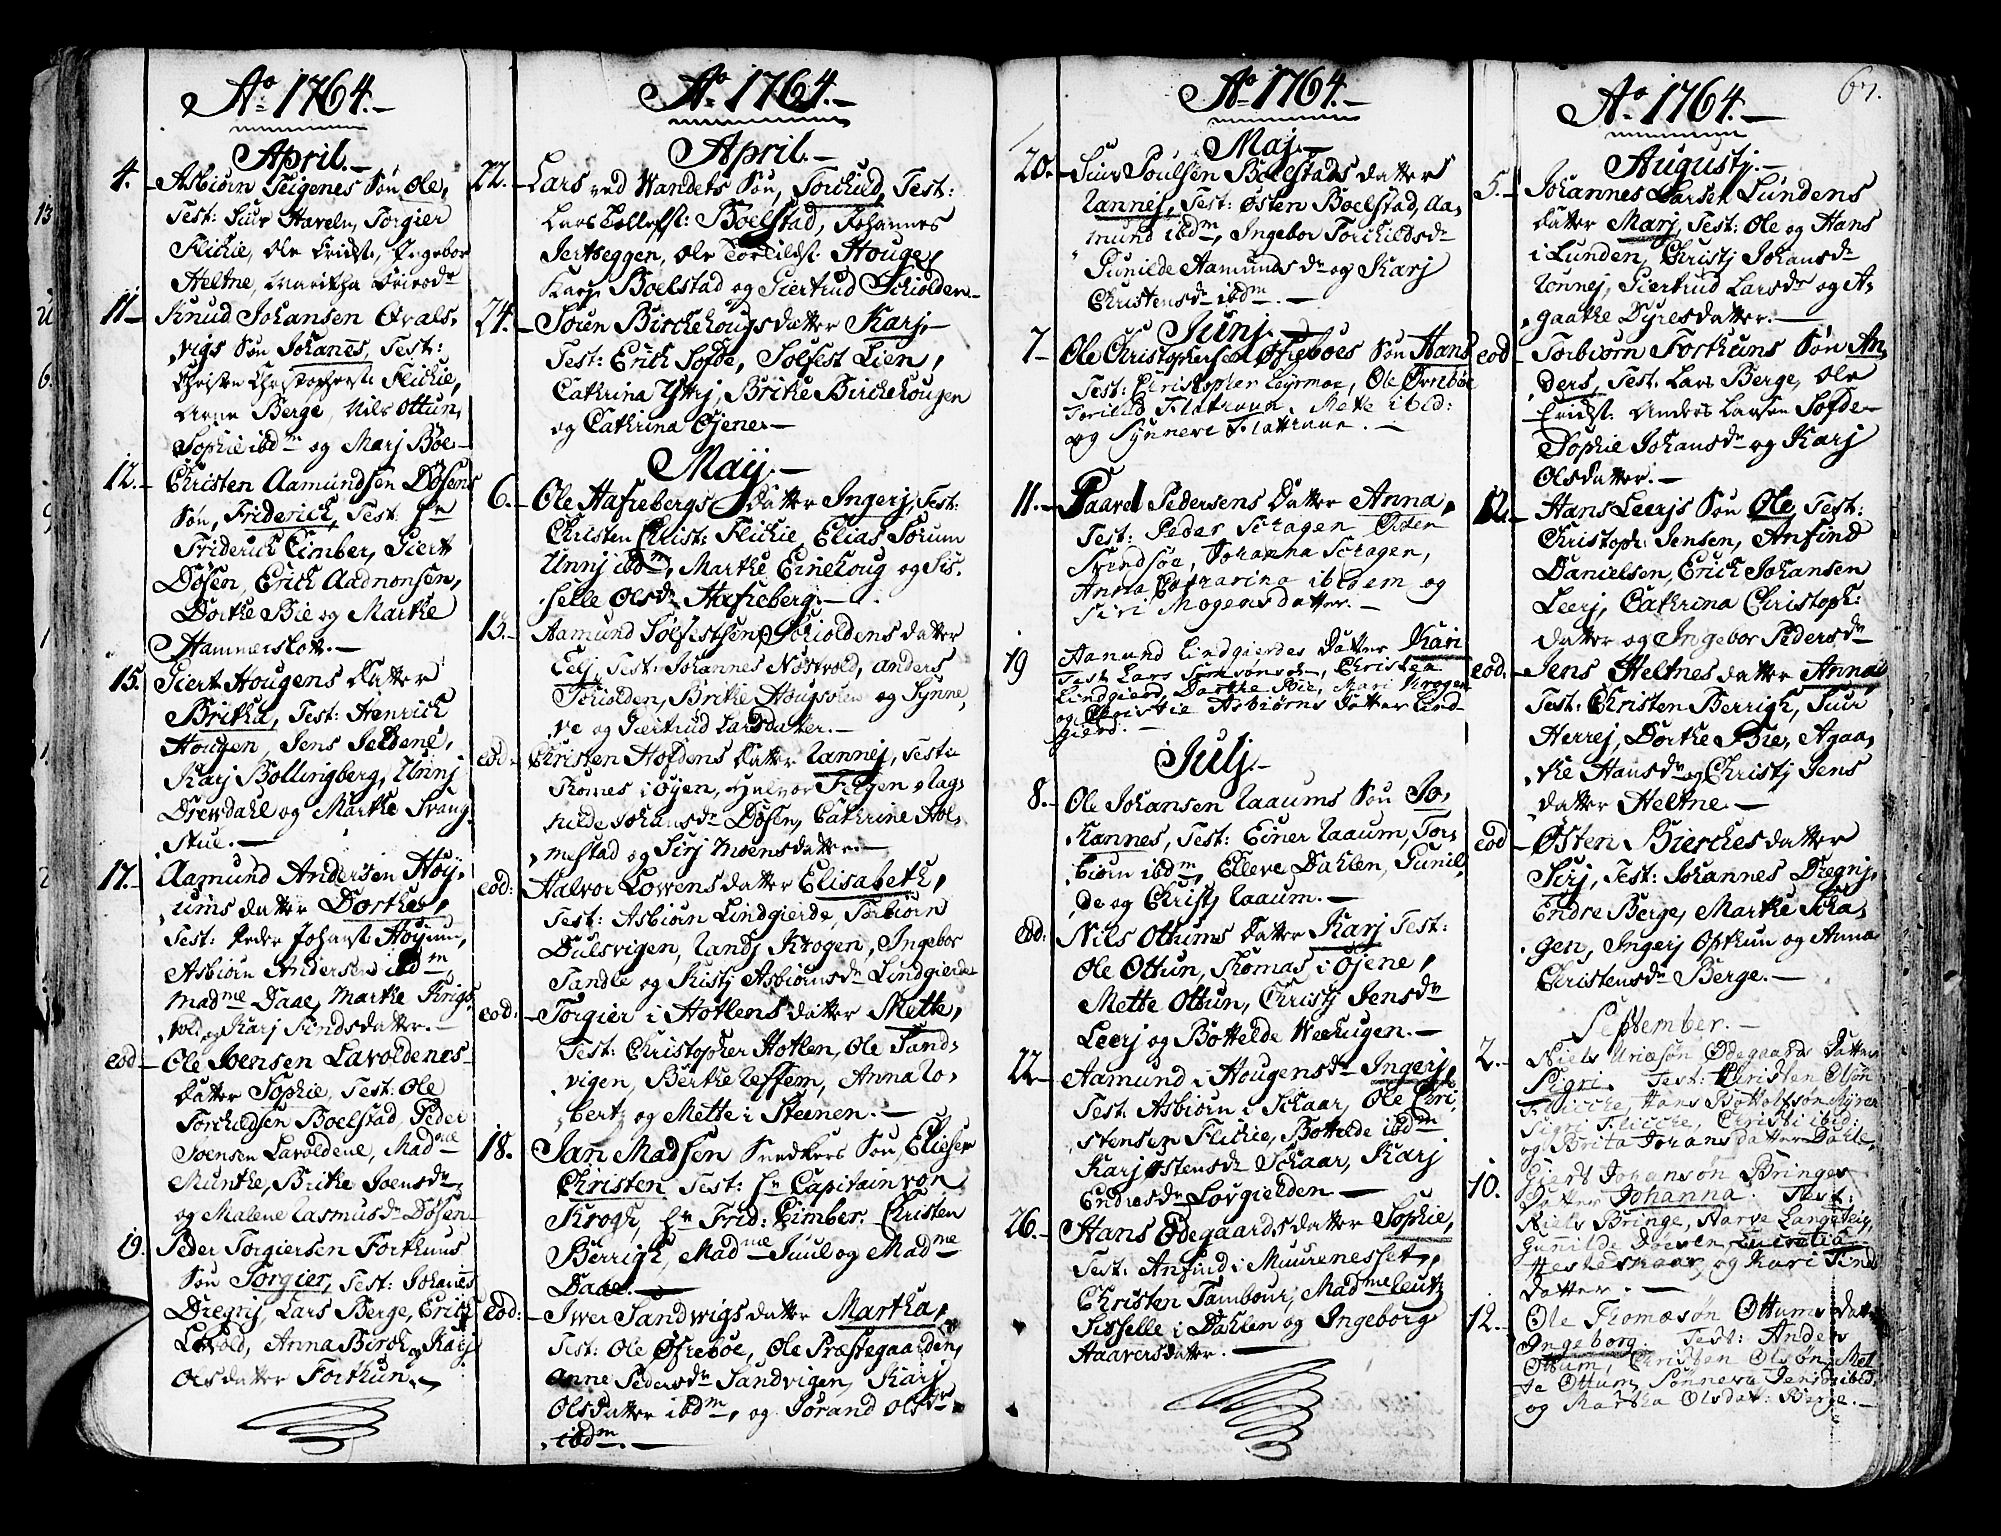 Ao 1764.
April.
4. Asbiørn Teigenes Søn Ole,
Test: Siur Haveln, Torgier
Flickie, Ole Eridst:, Ingebor
Heltne, Maritha
11 Knud Johansen Ørals-
vigs Søn Johanēs, Test:
Christen Christophersn: Flickie,
Arne Berge, Nils Ottun,
Sophie ibdm og Marj Böe
12. Christen Aamundsen Døsens
Søn, Friderich, Test: Hr
Friderich Cimber, Giert
Døsen, Erich Aadnonsen,
Dorthe Bie og Marthe
Hammerslott.
15. Giert Hougens Datter
Britha, Test: Henrich
Hougen, Jens
Karj Bollingberg, Unnj
Drewdahl og Marthe Svang-
stue.
17. Aamund Andersen Høy-
ums Datter Dorthe,
Test: Peder Johanst: Høyum,
Asbiørn Andersen ibdm,
Madme Daae, Marthe Krigs-
vold og Karj Sindsdatter.
eod Ole Joensen Lavoldenes
Datter Sophie, Test: Ole
Torchildsen Boelstad, Peder
Joensen Lavoldene, Madme
Munthe, Brithe Joensdr
og Malene Rasmusdr Døsen
19. Peder Torgiersen Forthuns
Søn Torgier, Test: Johanēs
Dregnj, Lars Berge, Erich
Lavold, Anna Birch, og Karj
Olsdatter Forthun.
Ao 1764.
April.
22. Lars ved Wandets Søn, Torchild, Test:
Lars Tolleffst: Boelstad, Johannes
Jertseggen, Ole Torkildst: Houge,
Karj Boelstad og Giertrud Schiolden
24. Søren Birchehougs datter Karj
Test: Erich Sofde, Solfest Lien,
Cathrina Ystrj, Brithe Birchehougen
og Cathrina Öjene.
Maij.
6. Ole Hafsebergs Datter Ingerj, Test:
Christen Christ: Flickie, Elias Sorum
Unnj ibdm, Marthe Einehoug og Sis-
selle Olsdr Hafseberg.
13. Aamund Solfestsen Schioldens datter
Eli, Test: Johannes Nostvold, Anders
Schiolden, Brithe Hougsolen og Synne-
ve og Giertrud Larsdatter.
eod: Christen Hofdens Datter Rannej, Test:
Thomes i Øyen, Halvor Feigen, Rag-
nilde Johansdr Døsen, Cathrine Hol-
mestad og Sirj Moensdatter.
eod: Halvor Lowens datter Elisabeth,
Test: Asbiørn Lindgierde, Torbiørn
Dulsvigen, Randj Krogen, Ingebor
Tandle og Kristj Asbiørnsdr Lindgierde
eod: Torgier i Hotlens datter Mette,
Test: Christopher Hotlen, Ole Sand-
vigen, Berthe Leffem, Anna Ro-
bertz og Mette i Steenen.
18. Jan Madsen Snedkers Søn, Elieser
Christen Test: Hr Capitain von
Krogh, Hr Frid: Cimber, Christen
Berrigh, Madme Juul og Madme
Daae.
eod: Iwer Sandwigs datter Martha,
Test: Ole Øfrebøe, Ole Præstegaarden,
Anne Pedersdr Sandvigen, Karj
Olsdatter ibdm, og Jorand Olsdr
ibdm.
Ao 1764.
Maj.
20. Siur Poulsen Boelstads datter
Rannej, Test: Østen Boelstad, Aa-
mund ibdm, Ingebor Torchildsdr
Gunilde Aamundsdr og Karj
Christensdr ibdm.
Junj.
7 Ole Christophersen Øfrebøes Søn Hans
Test: Christopher Leyrmoe, Ole Øvrebøe
Torkild Flatraun, Mette ibid:
og Synneve Flatraun.
11. Paavel Pedersens Datter Anna,
Test: Peder Schagen Østen
Svindsøe, Johanna Schagen,
Anna Catharina ibidem og
Siri Mogensdatter.
19 Aamund Lindgierdes Datter Kari
Test Lars Samsonsen, Christen
Lindgierd, Dorthe Bie, Mari Krogen
og Christie Asbiørns datter Lind-
gierd.
Julj.
8. Ole Johansen Raaums Søn Jo-
hannes, Test: Einer Raaum, Tor-
biørn ibdm, Elleve Dahlen, Gunil-
de og Christj Raaum.
eod: Nils Ottums Datter Karj Test:
Ole Ottun, Thomas i Øjene,
Mette Ottun, Christj Jensdr
Leerj og Bottelde Weehugen.
22 Aamund i Hougensdr Ingerj,
Test: Asbiørn i Schaar, Ole Chri-
stensen Flickie, Bottelde ibdm
Karj Østensdr Schaar, Karj
Endresdr Lovgielden
26. Hans Ødegaards datter Sophie,
Test: Anfind i Muurenesset,
Christen Tambour, Madme Leutz
Sisselle i Dahlen og Ingeborg
Haaversdatter.
67.
Ao 1764.
Augustj.
5. Johannes Larsen Lundens
datter Marj, Test: Ole og Hans
i Lunden, Christj Johansdr
Ronnej, Giertrud Larsdr og A-
gaathe Dyresdatter.
eod Torbiørn Forthuns Søn An-
ders, Test: Lars Berge, Ole
Eridst: Anders Larsen Sofde
Sophie Johansdr og Karj
Olsdatter.
12. Hans Leerjs Søn Ole, Test:
Christoph: Jensen, Anfind
Danielsen, Erich Johansen
Leerj, Cathrina Christoph:
datter og Ingebor Pedersdr
eod. Jens Heltnes datter Anna
Test: Christen Berrigh, Siur
Herrej, Dorthe Bie, Agaa-
the Hansdr og Christj Jens
datter Heltne.
eod Østen Bierches datter
Sirj, Test: Johannes Dregnj,
Endre Berge, Marthe Scha-
gen, Ingerj Opthun og Anna
Christensdr Berge.
September.
2. Niels Uriæsøn Ødegaards Datter
Sigri. Test: Christen Olsøn
Flicche, Hans Bottolfson
Sigri Flicche, Christi ibid:
og Brita Johansdatter Dahle
10. Giert Johansøn Bringes
Datter Johanna. Test:
Niels Bringe, Narve Langeteig,
Gunnilde Døesen, Lucretia
Hesteskaar, og Kari Sinds
datter.
12. Ole Thomæsøn Ottums Datter
Ingeborg Test: Anders
Ottum, Christen Olsøn, Met-
te Ottum, Sønneva Jensd: ibid:
og Martha Olsdat: Berge.